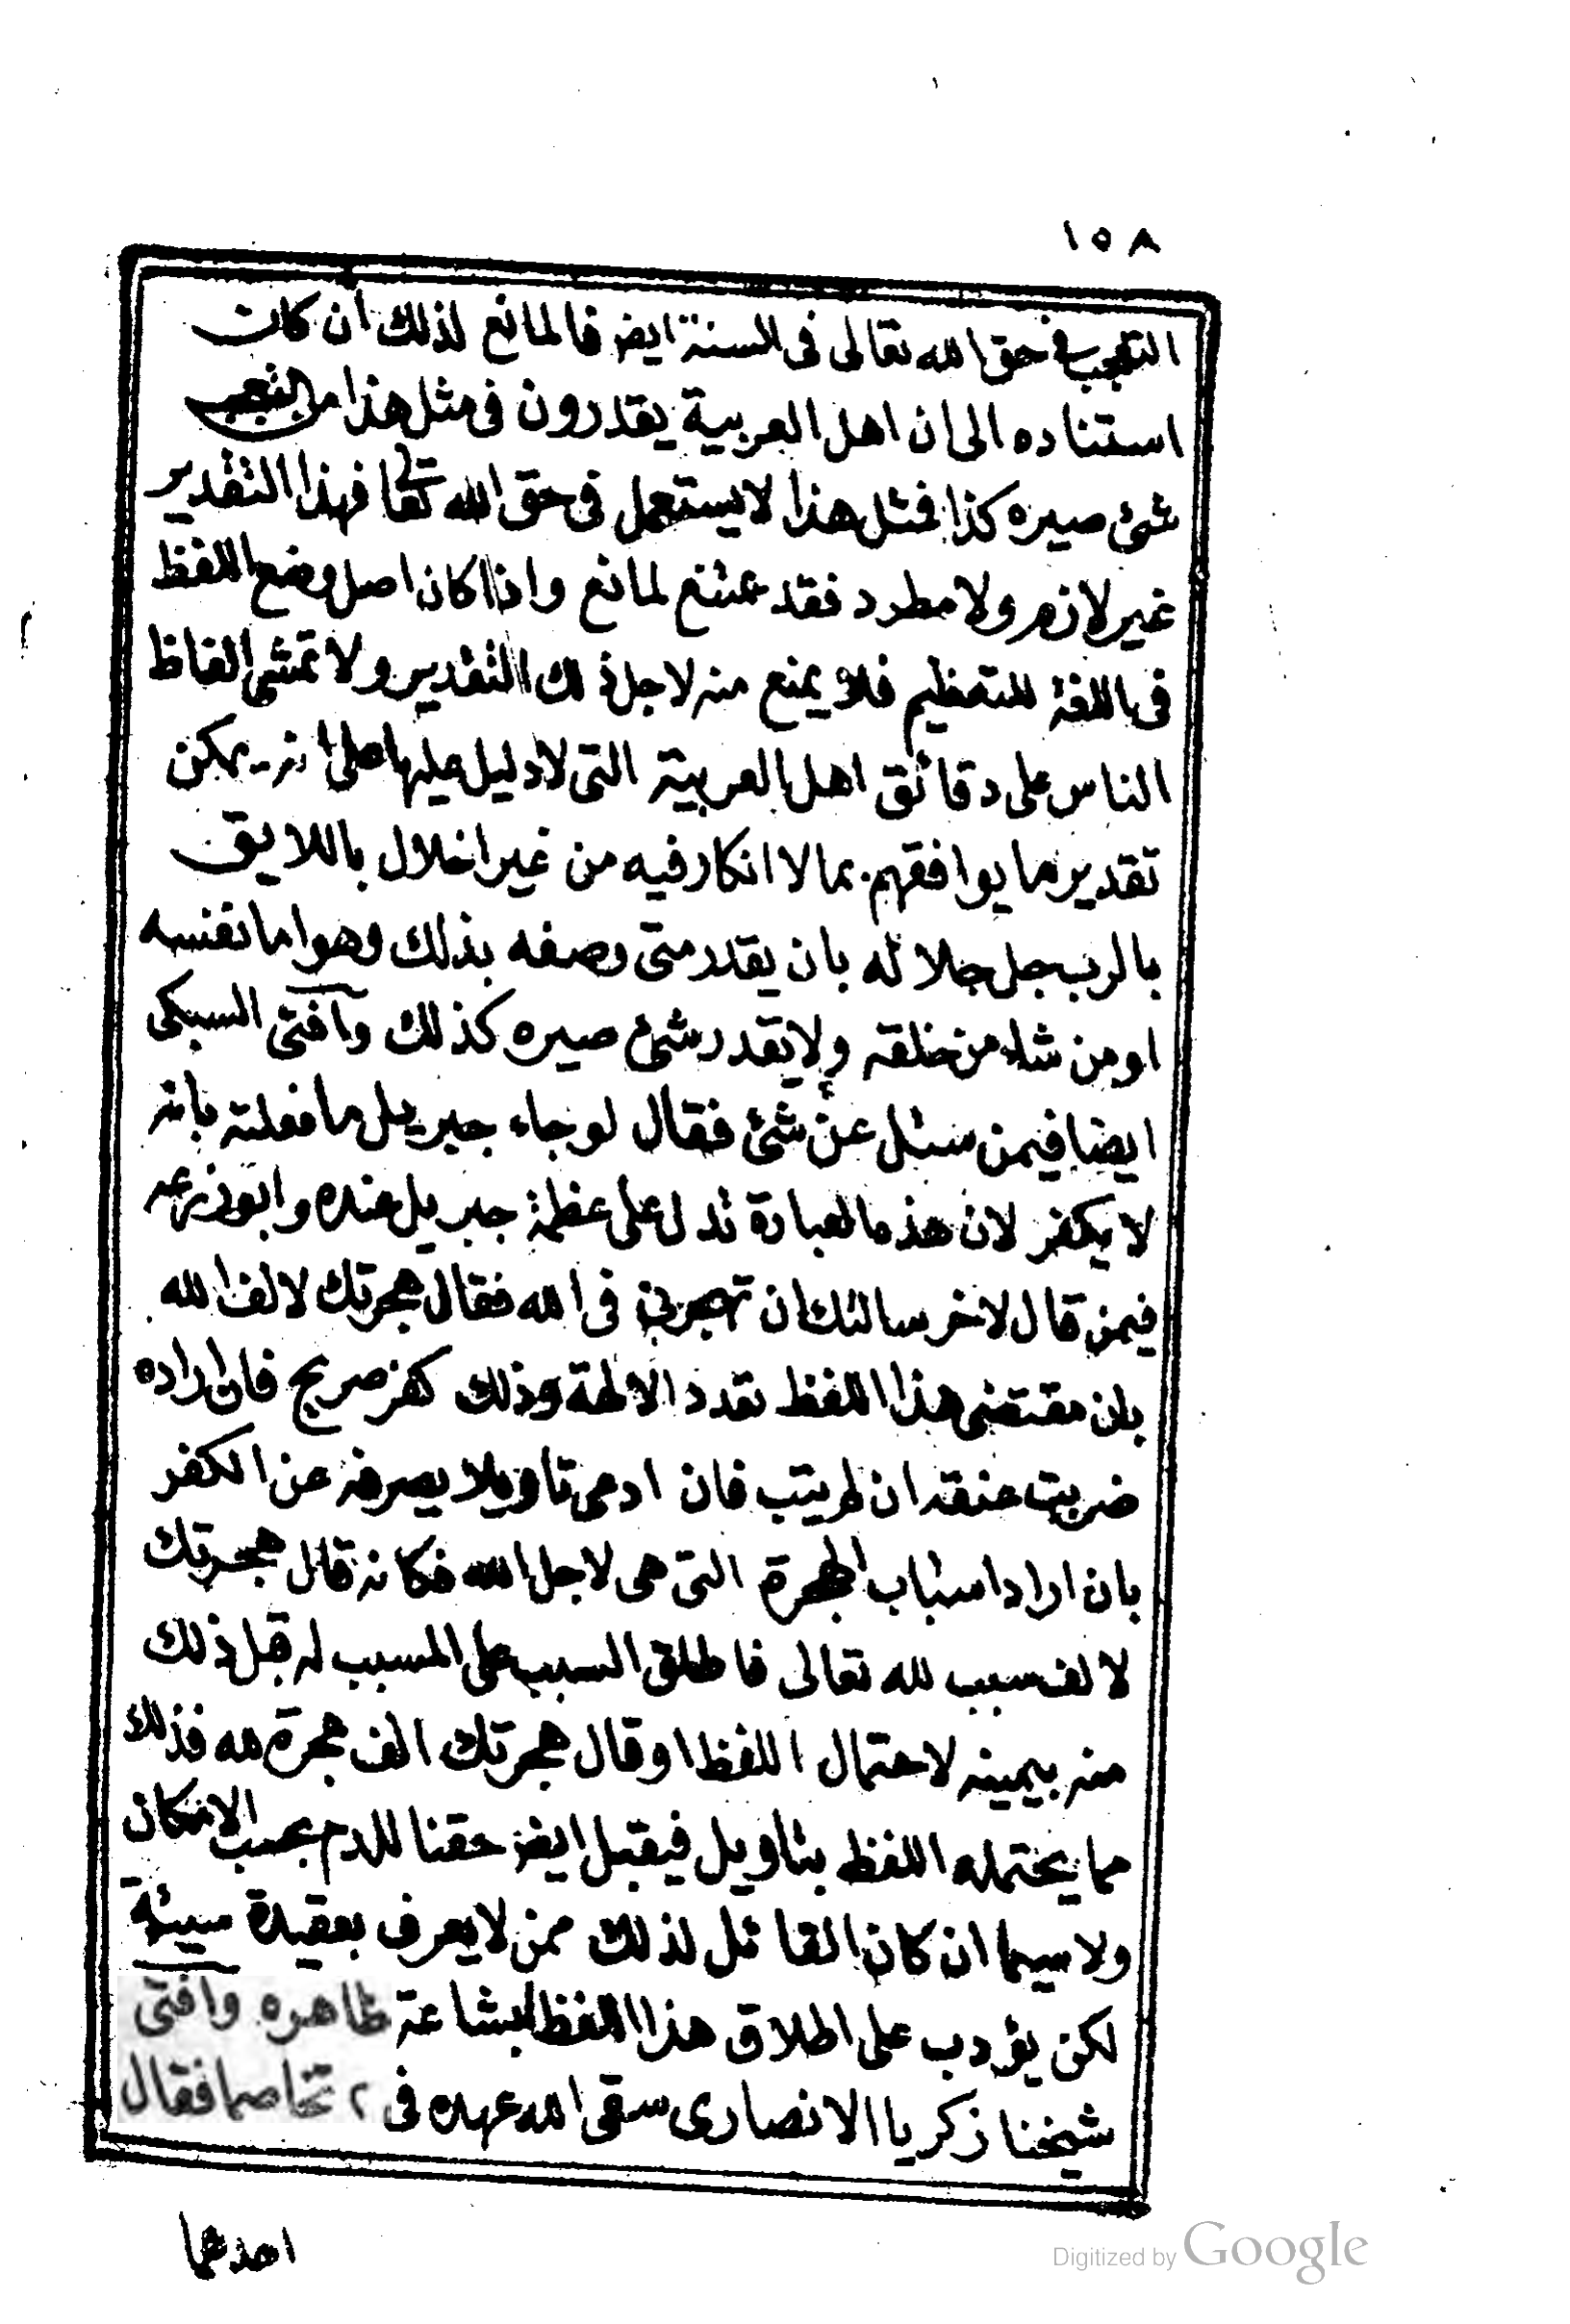 ١٥٨
التعجب فى حق الله تعالى فى السنة ايض فالمانع لذلك ان كان
استناده الى ان اهل العربية يقدرون فى مثل هذا من التعجب
شئ صيره كذا فمثل هذا لا يستعمل فى حق الله تعالى فهذا التقدير
غير لازم ولا مطرد فقد يمتنع لمانع واذا كان اصل وضع اللفظ
فى اللغة للتعظيم فلا يمنع منه لاجل ذلك التقدير ولا تمشى الفاظ
الناس على دقائق اهل العربية التى لا دليل عليها على انه يمكن
تقدير ما يوافقهم بما لا انكار فيه من غير اخلال باللايق
بالرب جل جلاله بان يقدر متى وصفه بذلك وهو اما نفسه
او من شاء من خلقه ولا يقدر شئ صيره كذلك وافتى السبكى
ايضا فيمن سئل عن شئ فقال لو جاء جبريل ما فعلته بانه
لا يكفر لان هذه العبارة تدل على عظمة جبريل عنده وابو زرعه
فيمن قال لاخر سالتك ان تهجرنى فى الله فقال هجرتك لالف الله
بان مقتضى هذا اللفظ تعدد الالهة وذلك كفر صريح فان اراده
ضربت عنقه ان لم يتب فان ادعى تاويلا يصرفه عن الكفر
بان اراد اسباب الهجرة التى هى لاجل الله فكانه قال هجرتك
لالف سبب لله تعالى فاطلق السبب على المسبب له قبل ذلك
منه بيمينه لاحتمال اللفظ او قال هجرتك الف هجرة لله فذلك
مما يحتمله اللفظ بتاويل فيقبل ايض حقنا للدم بحسب الامكان
ولا سيما ان كان القائل لذلك ممن لا يعرف بعقيدة سيئة
لكن يؤدب على اطلاق هذا اللفظ لبشاعة ظاهره وافتى
شيخنا زكريا الانصارى سقى الله عهده فى ٢ تخاصما فقال
احدهما
Digitized by Google